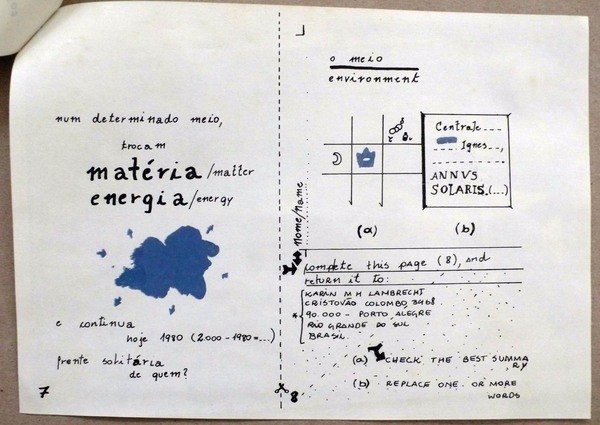 num determinado meio,
trocam
matéria/matter
energia/energy
e continua
hoje 1980 (2.000-1980=...)
frente solitária
de quem?
7
o meio
environment
Centrale...
Ignes...,
ANNVS
SOLARIS.(...)
(a)
(b)
nome/name
complete this page (8), and
return it to:
KARIN M H LAMBRECHT
CRISTOVÃO COLOMBO, 3468
* 90.000 - PORTO ALEGRE
RIO GRANDE DO SUL
BRASIL
(a) CHECK THE BEST SUMMA
RY
(b) REPLACE ONE OR MORE
WORDS
8